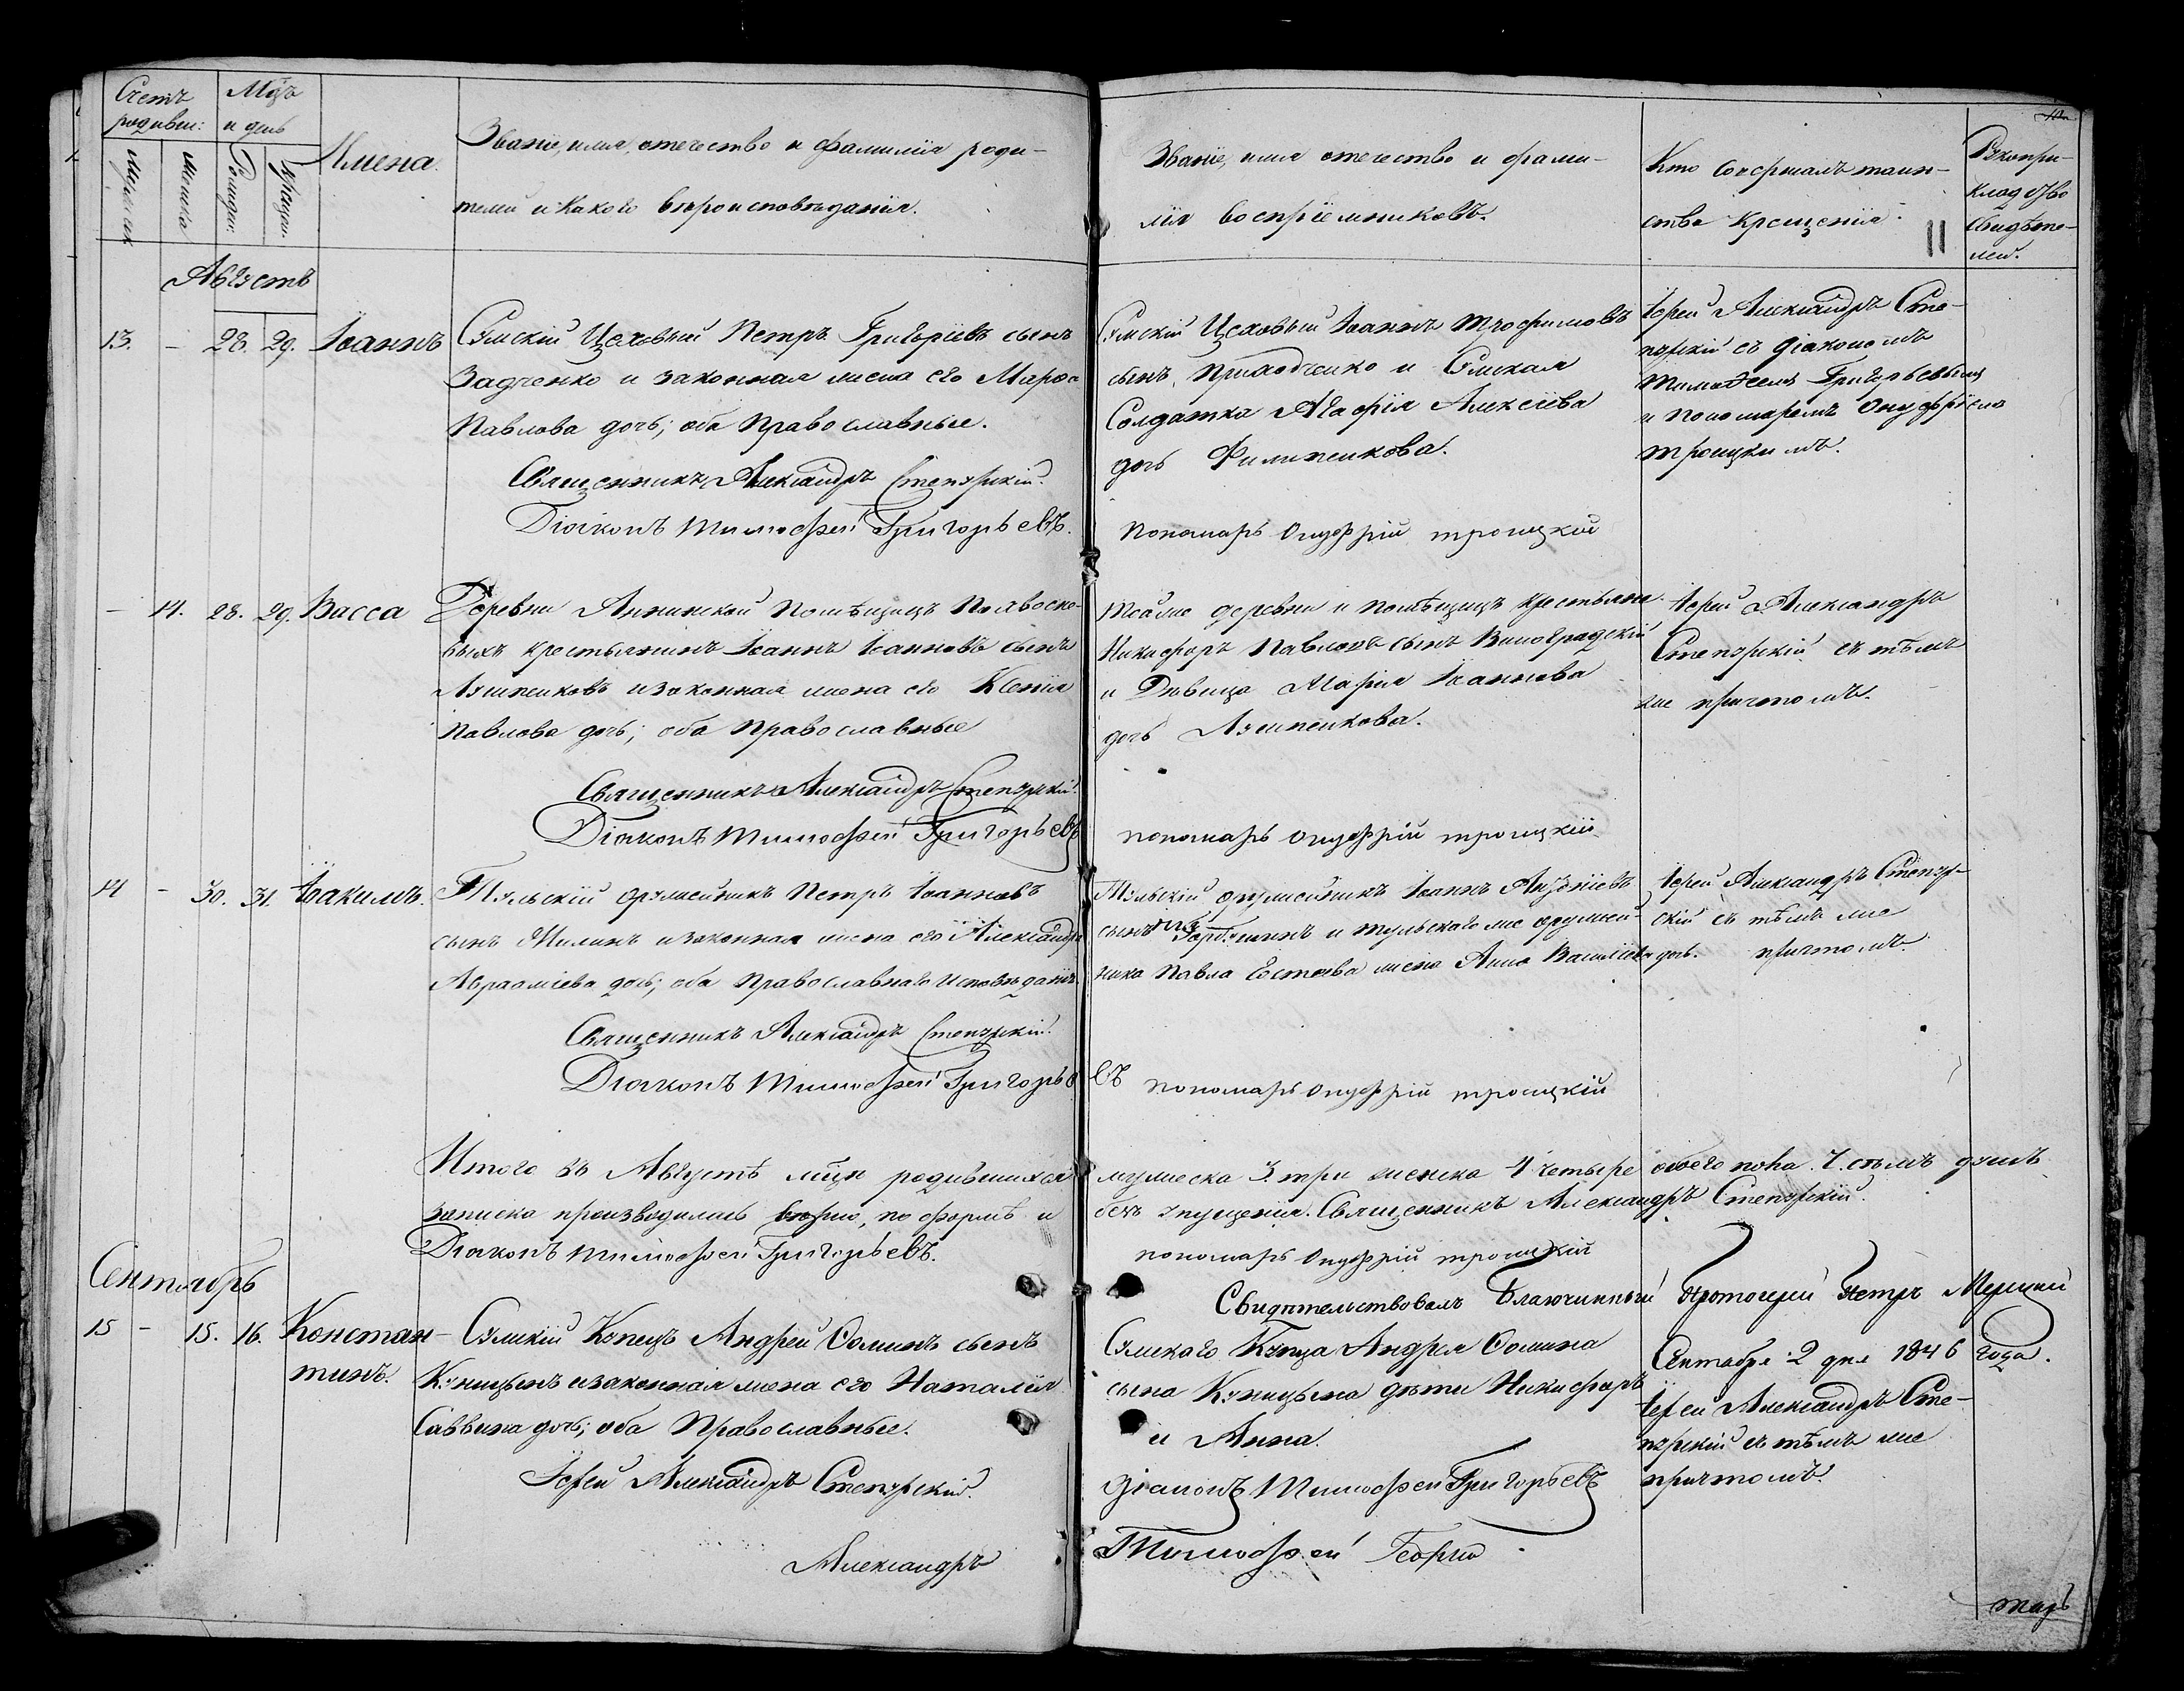 Счетъ родивш:
Мужеска
Женска
Мцъ и день
Рожден:
Крещен:
Имена.
Званіе, имя, отечество и фамилія роди-
телей и какого вѣроисповѣданія.
Званіе, имя отечество и фами-
лія воспріемниковъ.
Кто совершалъ таин-
ство крещенія
Рукопри-
кладство
свидѣте-
лей.
Августъ
13. – 28. 29. Іоаннъ
Сумскій Цеховый Петръ Григоріевъ сынъ
Задченко и законная жена его Марѳа
Павлова дочь; оба Православные.
Священникъ Александръ Степурскій.
Діаконъ Тимофей Григорьевъ.
Сумскій Цеховый Іоаннъ Трофимовъ
сынъ Приходченко и Сумская
Солдатка Агафія Алексіева
дочь Филипенкова.
пономарь Онуфрій троицкій
Іерей Александръ Сте-
пурскій съ діакономъ
Тимофеемъ Григорьевымъ
и пономаремъ Онуфріемъ
троицкимъ.
– 14. 28. 29. Васса
Деревни Аннинской Помѣщицъ
выхъ крестьянинъ Іоаннъ Іоанновъ сынъ
и законная жена его Ксенія
Павлова дочь; оба Православные
Священникъ Александръ Степурскій.
Діаконъ Тимофей Григорьевъ
Тойже деревни и помѣщицъ крестьяне
Никифоръ Павловъ сынъ Виноградскій
и Дѣвица Марія Іоаннова
дочь
пономарь Онуфрій троицкій
Іерей Александръ
Степурскій съ тѣмъ
же причтомъ.
14 – 30. 31. Іоакимъ.
Тульскій оружейникъ Петръ Іоанновъ
сынъ Жилинъ и законная жена его Александра
Авраамієва дочь; оба православнаго исповѣданія.
Священникъ Александръ Степурскій.
Діаконъ Тимофей Григорьевъ
Тульскій оружейникъ Іоаннъ
сынъ и тульскаго же оружей-
ника Павла жена Анна Василіева дочь.
пономарь Онуфрій троицкій
Іерей Александръ Степур-
скій съ тѣмъ же
причтомъ.
Итого въ Августѣ мцѣ родившихся мужеска 3. три женска 4 четыре обоего пола. 7. семь душъ
записка производилась вѣрно, по формѣ и безъ упущенія. Священникъ Александръ Степурскій.
Діаконъ Тимофей Григорьевъ. пономарь Онуфрій троицкій
Свидѣтельствовалъ Благочинный Протоіерей Петръ
Сентября 2 дня 1846 года.
Сентябрь
15 – 15. 16. Констан-
тинъ.
Сумскій Купецъ Андрей Ѳоминъ сынъ
Куницынъ и законная жена его Наталія
Саввина дочь; оба Православные.
Іерей Александръ Степурскій.
Сумскаго Купца Андрея Ѳомина
сына Куницына дѣти Никифоръ
и Анна.
діаконъ Тимофей Григорьевъ
Іерей Александръ Сте-
пурскій съ тѣмъ же
причтомъ.
Александръ
Тимофей Георгій